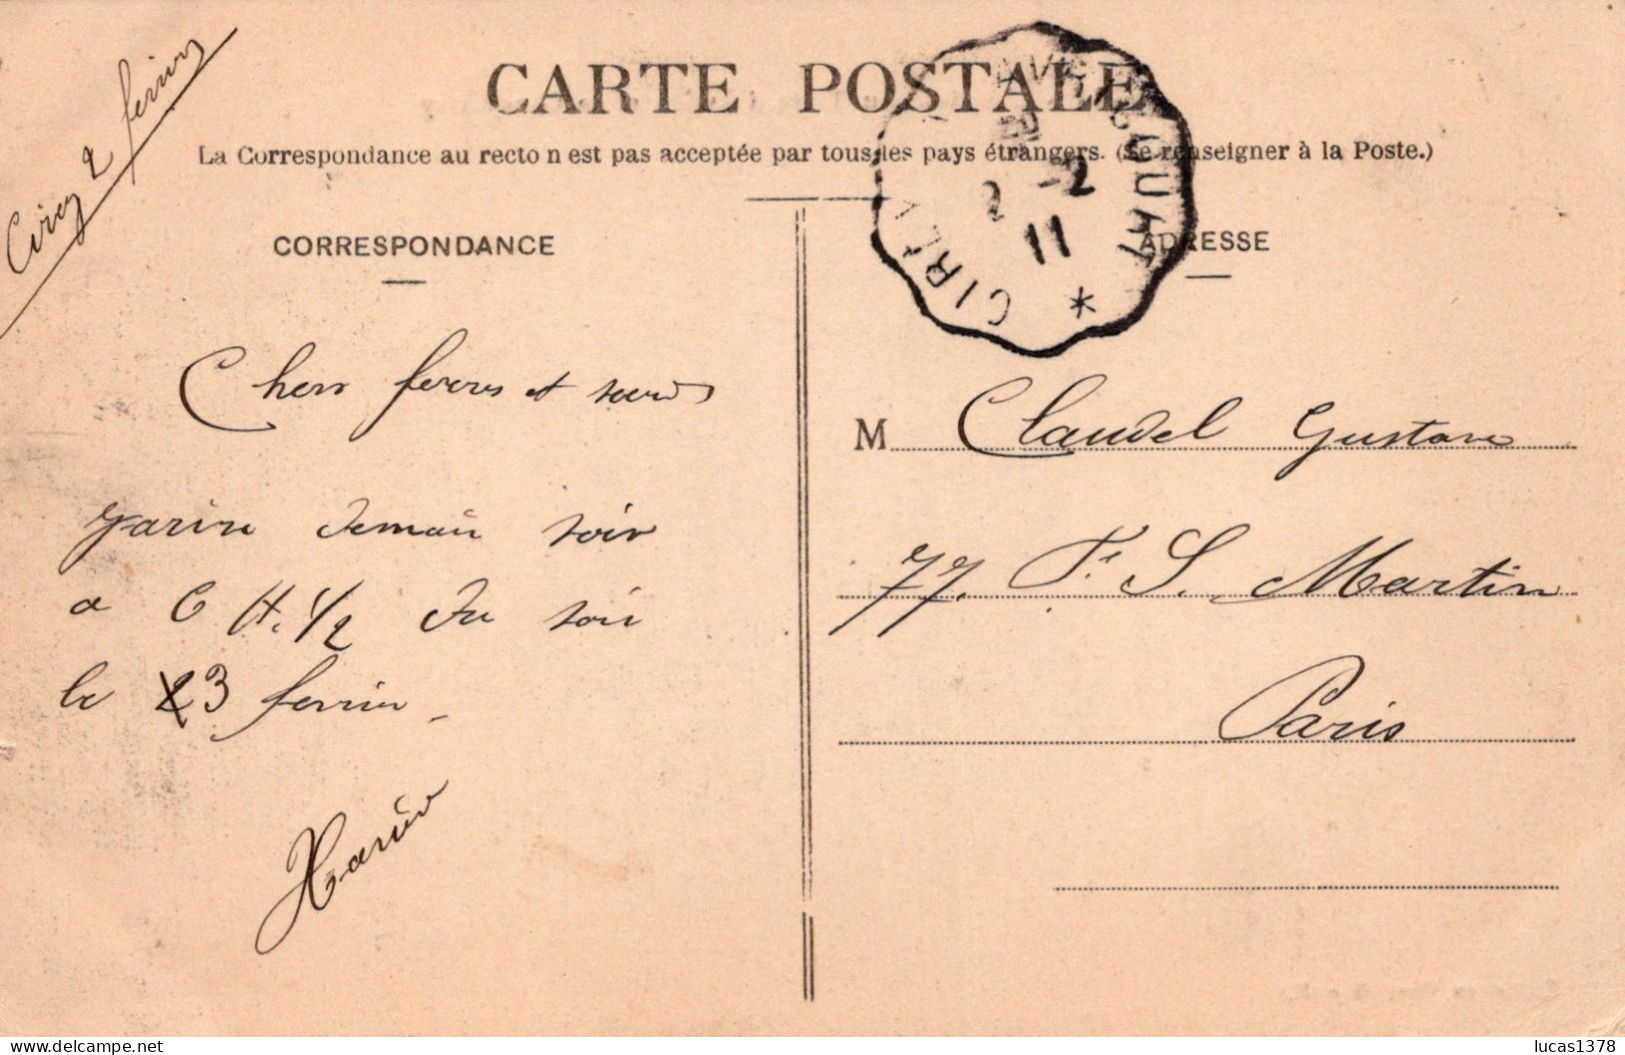 Cirey 2 ferier
CARTE POSTALE
La Correspondance au recto n est pas acceptée par tous les pays étrangers. (Se renseigner à la Poste.)
CORRESPONDANCE
Chers
et
demain soir
a 6 H. 1/2 du soir
le 3
ADRESSE
2 -2
11
*
M Claudel Gustave
77. F. S. Martin
Paris
delcampe.net
lucas1378